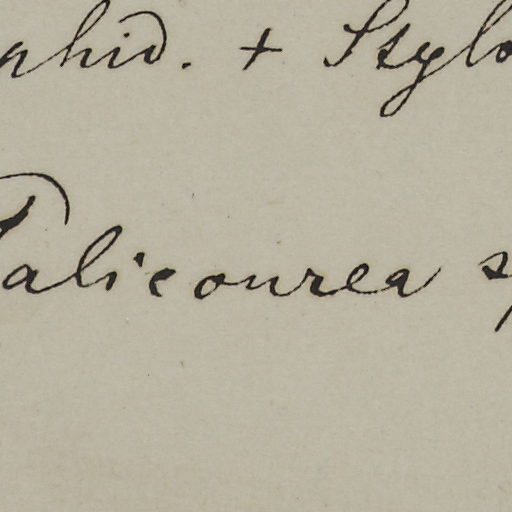 aphid. + Stylo
Palicourea sp